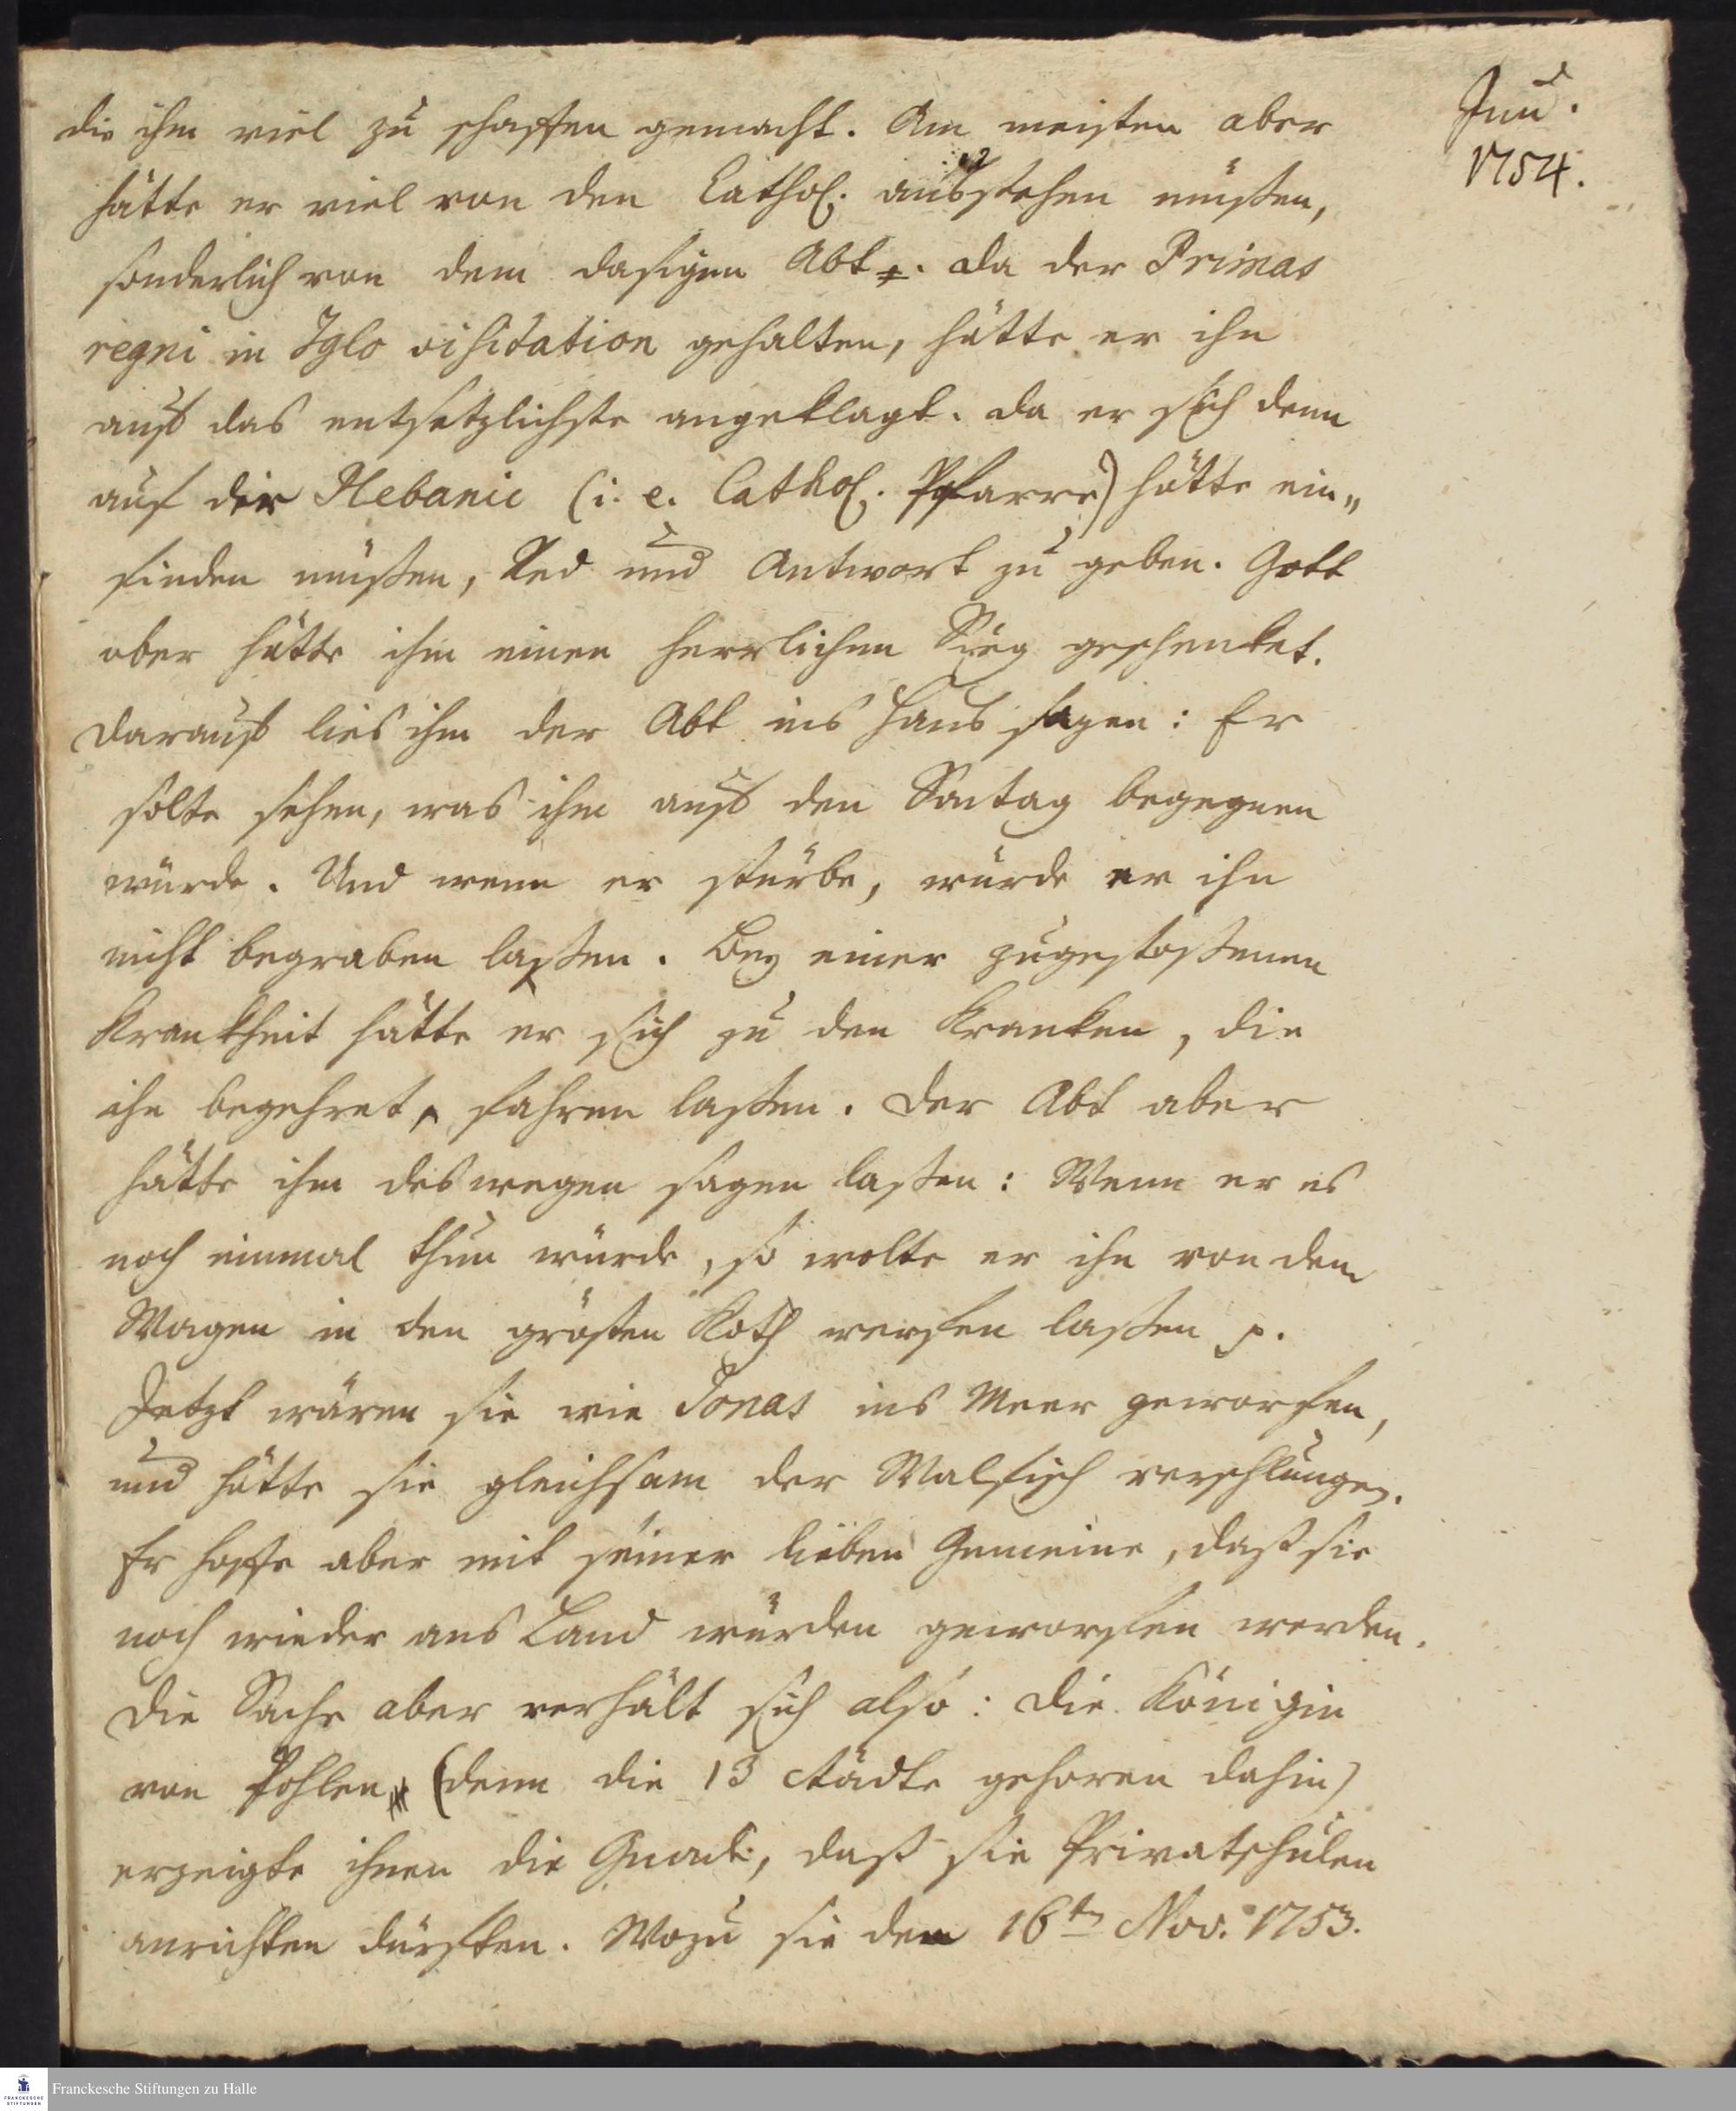 Jun.
1754.
die ihm viel zu schaffen gemacht. Am meisten aber
hätte er viel von den Cathol. ausstehen müßen,
sonderlich von dem dasigen Abt. Da der Primas
regni in Iglo visitation gehalten, hätte er ihn
aufs das entsetzlichste angeklagt. Da er sich denn
auf der Plebanie (i. e. Cathol. Pfarre) hätte ein„
finden müßen, Red und Antwort zu geben. Gott
aber hätte ihm einen herrlichen Sieg geschenket.
Darauf lies ihm der Abt ins Haus sagen: Er
solte sehen, was ihm auf den Sontag begegnen
würde. Und wenn er stürbe, würde er ihn
nicht begraben laßen. Bey einer zugestoßenen
Krankheit hätte er sich zu den Kranken, die
ihn begehret, fahren laßen. Der Abt aber
hätte ihm deswegen sagen laßen: Wenn er es
noch einmal thun würde, so wolte er ihn von dem
Wagen in den grösten Koth werfen laßen p.
Jetzt wären sie wie Jonas ins Meer geworfen,
und hätte sie gleichsam der Walfisch verschlungen.
Er hoffe aber mit seiner lieben Gemeine, daß sie
noch wieder ans Land würden geworfen werden.
Die Sache aber verhält sich also: Die Königin
von Pohlen (denn die 13 Städte gehören dahin)
erzeigte ihnen die Gnade, daß sie Privatschulen
anrichten dürften. Wozu sie den 16ten Nov. 1753.
Franckesche Stiftungen zu Halle
FRANCKESCHE
STIFTUNGEN